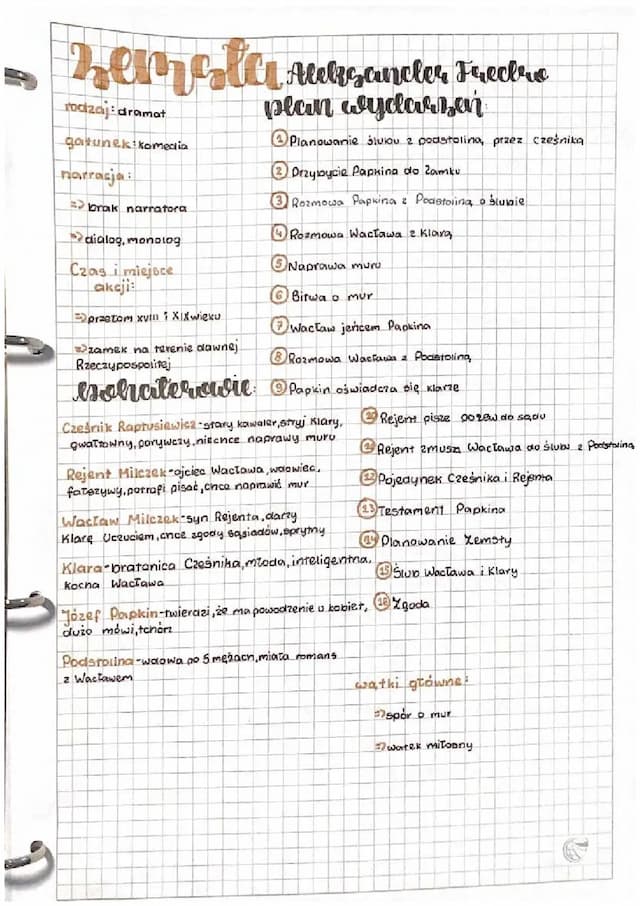 Zemsta
Aleksander Fredro
plan wydarzeń:
rodzaj: dramat
gatunek: komedia
narracja:
=> brak narratora
=> dialog, monolog
Czas i miejsce
akcji:
=> przełom XVIII i XIX wieku
=> zamek na terenie dawnej
Rzeczypospolitej
① Planowanie ślubu z podstoliną przez cześnika
② Przybycie Papkina do Zamku
③ Rozmowa Papkina z Podstoliną o ślubie
④ Rozmowa Wacława z Klarą
⑤ Naprawa muru
⑥ Bitwa o mur
⑦ Wacław jeńcem Papkina
⑧ Rozmowa Wacława z Podstoliną
⑨ Papkin oświadcza się klarze
⑩ Rejent pisze pozew do sądu
⑪ Rejent zmusza Wacława do ślubu z Podstoliną
⑫ Pojedynek Cześnika i Rejenta
⑬ Testament Papkina
⑭ Planowanie Zemsty
⑮ Ślub Wacława i Klary
⑯ Zgoda
bohaterowie:
Cześnik Raptusiewicz-stary kawaler, stryj Klary,
gwałtowny, porywczy, niechce naprawy muru
Rejent Milczek-ojciec Wacława, wdowiec,
fałszywy, potrafi pisać, chce naprawić mur
Wacław Milczek-syn Rejenta, darzy
Klarę Uczuciem, chce zgody sąsiadów, sprytny
Klara-bratanica Cześnika, młoda, inteligentna,
kocha Wacława
Józef Papkin-twierdzi, że ma powodzenie u kobiet,
dużo mówi, tchórz
Podstolina-wdowa po 3 mężach, miała romans
z Wacławem
wątki główne:
=> spór o mur
=> wątek miłosny